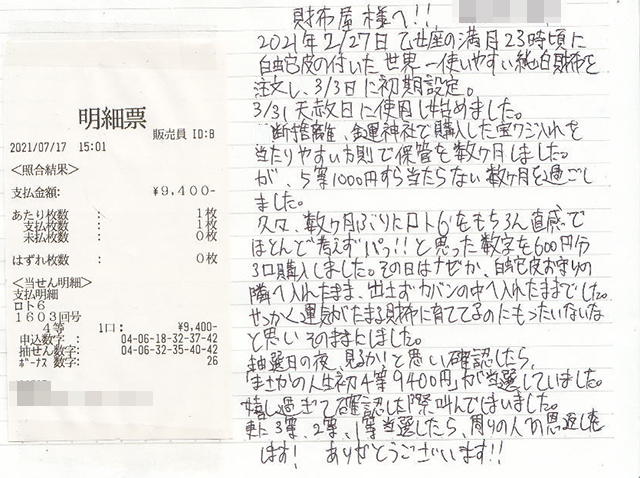 明細票
販売員 ID:B
2021/07/17 15:01
<照合結果>
支払金額: ¥9,400-
あたり枚数 : 1枚
支払枚数 : 1枚
未払枚数 : 0枚
はずれ枚数 : 0枚
<当せん明細>
支払明細
ロト6
1603回号
4等 1口: ¥9,400-
申込数字: 04-06-18-32-37-42
抽せん数字: 04-06-32-35-40-42
ボーナス数字: 26
財布屋様へ!!
2021年2/27日乙女座の満月23時頃に
白蛇皮の付いた世界一使いやすい純白財布を
注文し、3/3日に初期設定。
3/31天赦日に使用し始めました。
断捨離、金運神社で購入した宝クジ入れを
当たりやすい方則で保管を数ヶ月しました。
が、5等1000円すら当たらない数ヶ月を過ごし
ました。
久々、数ヶ月ぶりにロト6をもちろん直感で
ほとんど考えずパッ!!と思った数字を600円分
3口購入しました。その日はナゼか、白蛇皮お守りの
隣へ入れたまま、出さずカバンの中へ入れたままでした。
せっかく運気がたまる財布に育ててるのにもったいないな
と思いそのままにしました。
抽選日の夜、見るか!と思い確認したら、
「まさかの人生初4等9400円」が当選していました。
嬉し過ぎて確認した際、叫んでしまいました。
更に3等、2等、1等当選したら、周りの人への恩返しを
します! ありがとうございます!!